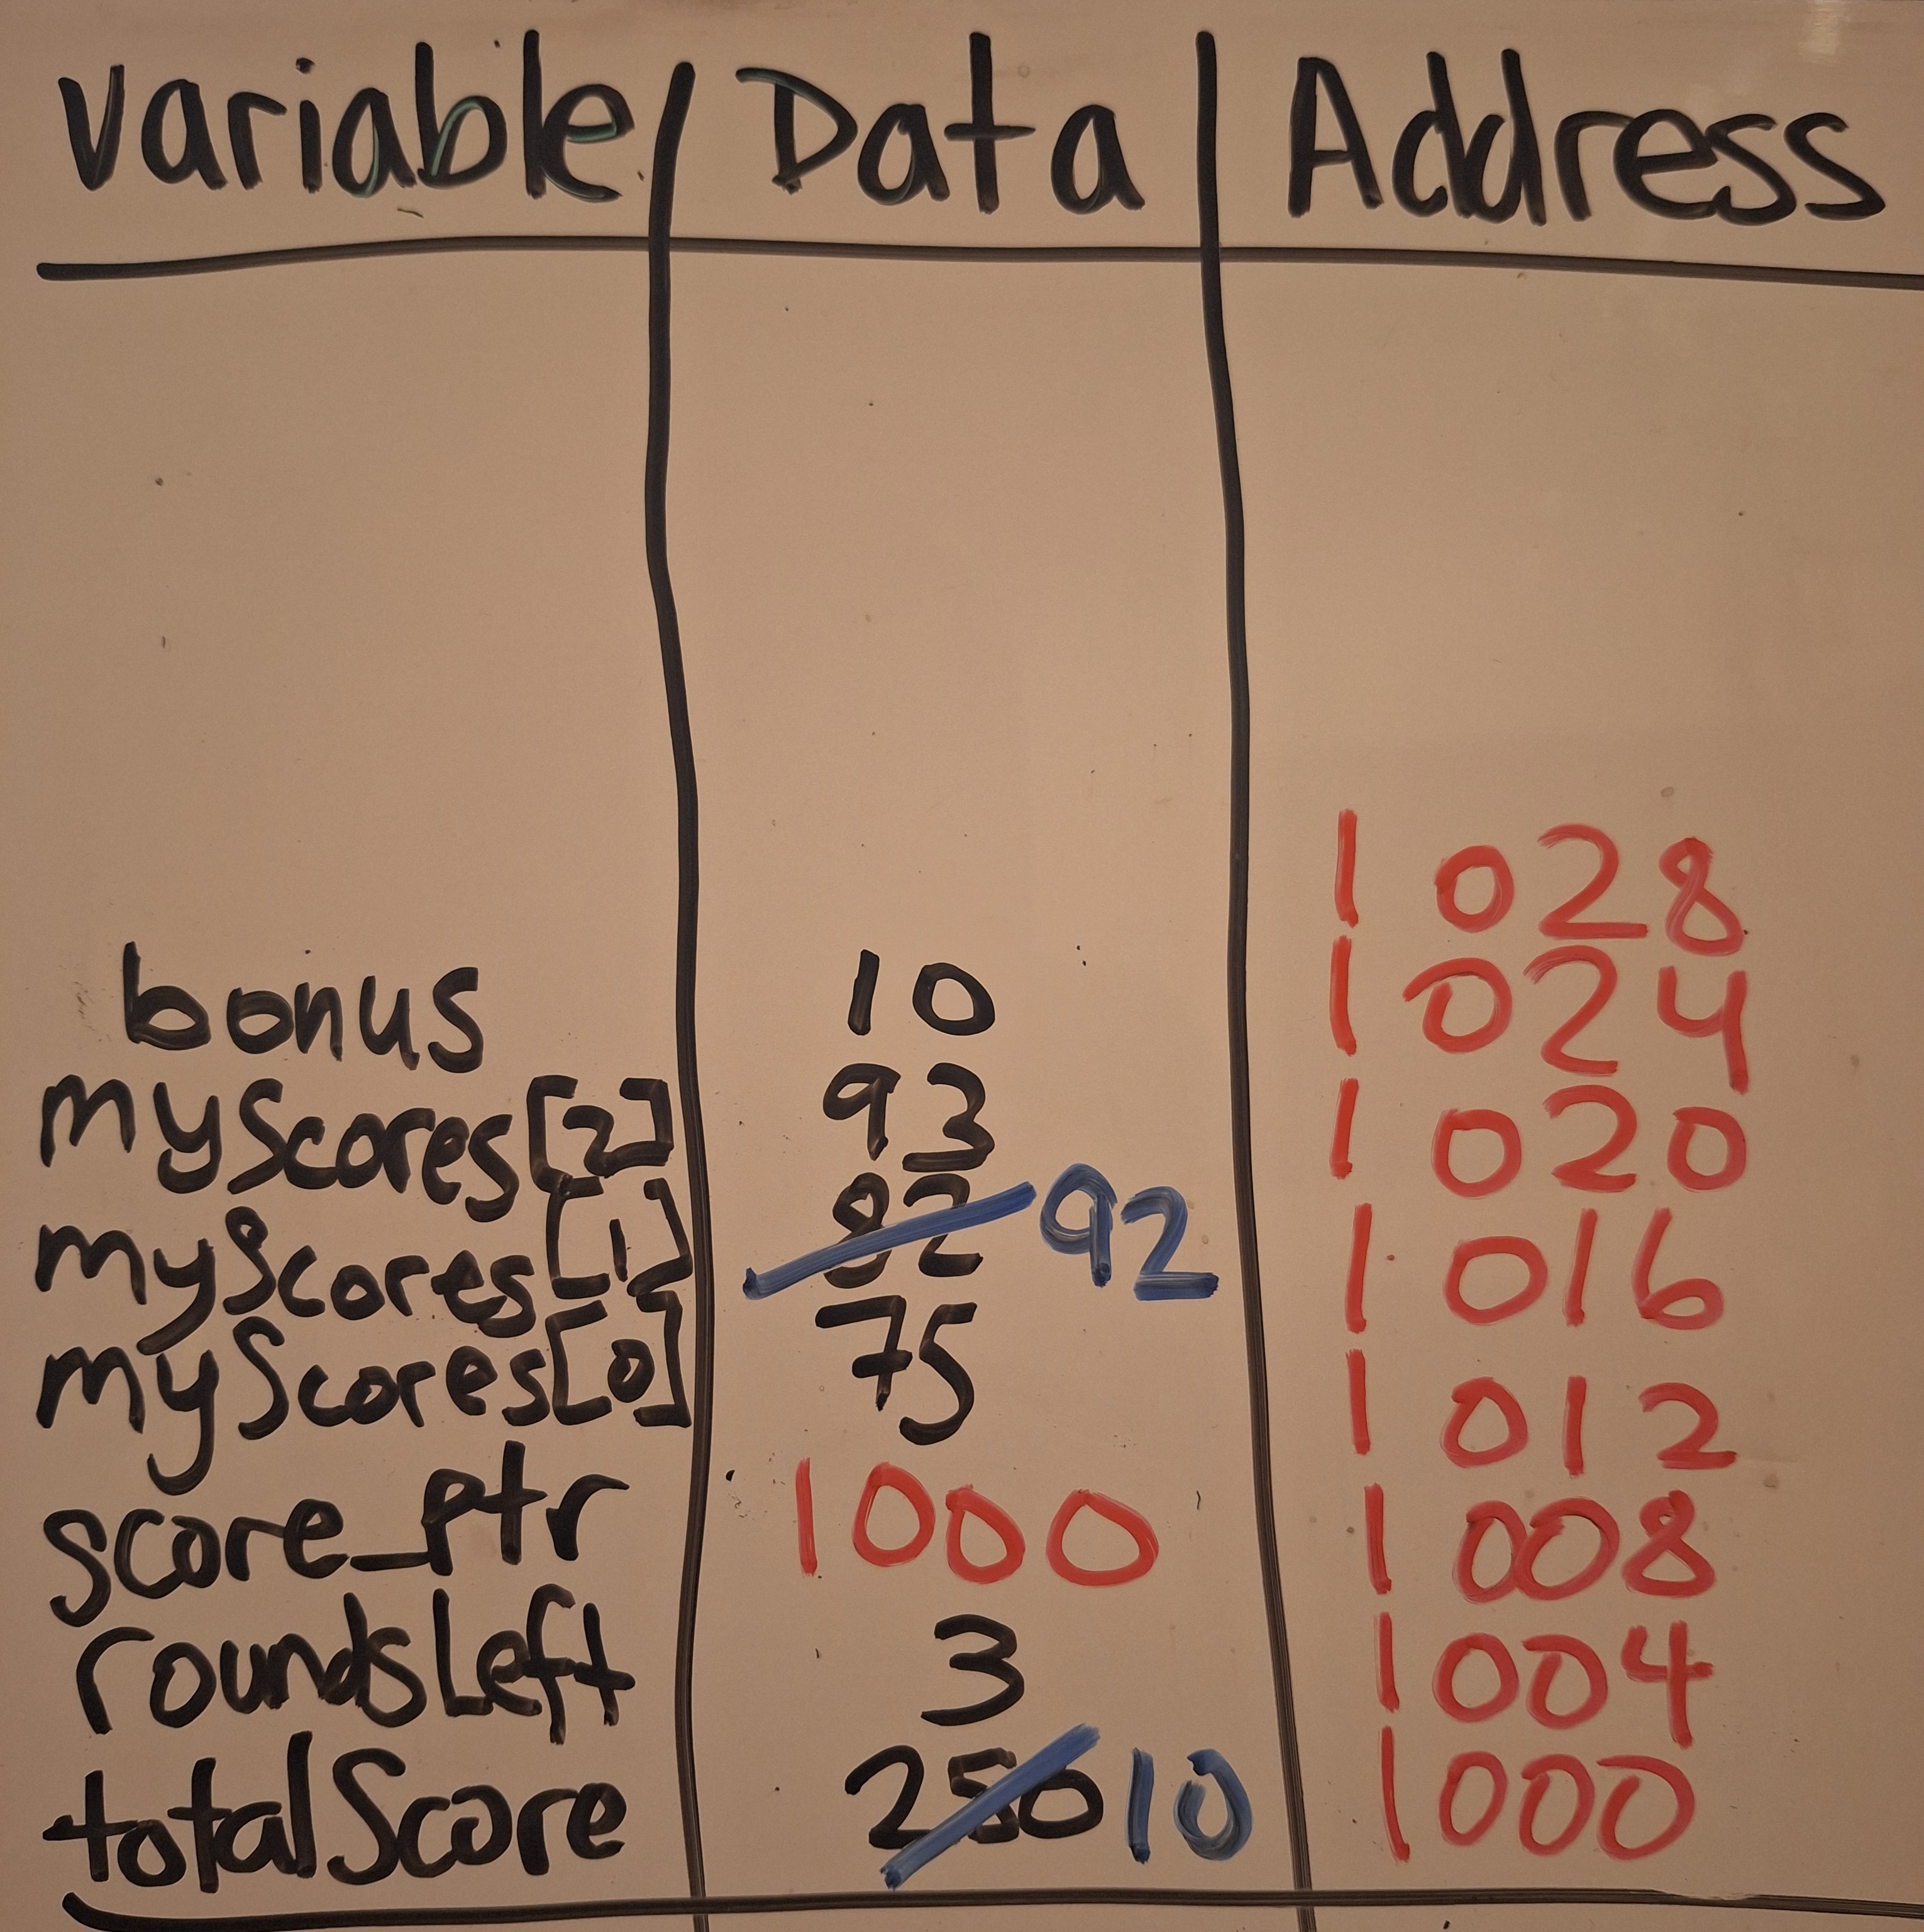 Variable Data Address
1028
bonus 10 1024
myScores[2] 93 1020
myScores[1] 82 92 1016
myScores[0] 75 1012
score_ptr 1000 1008
roundsLeft 3 1004
totalScore 250 10 1000